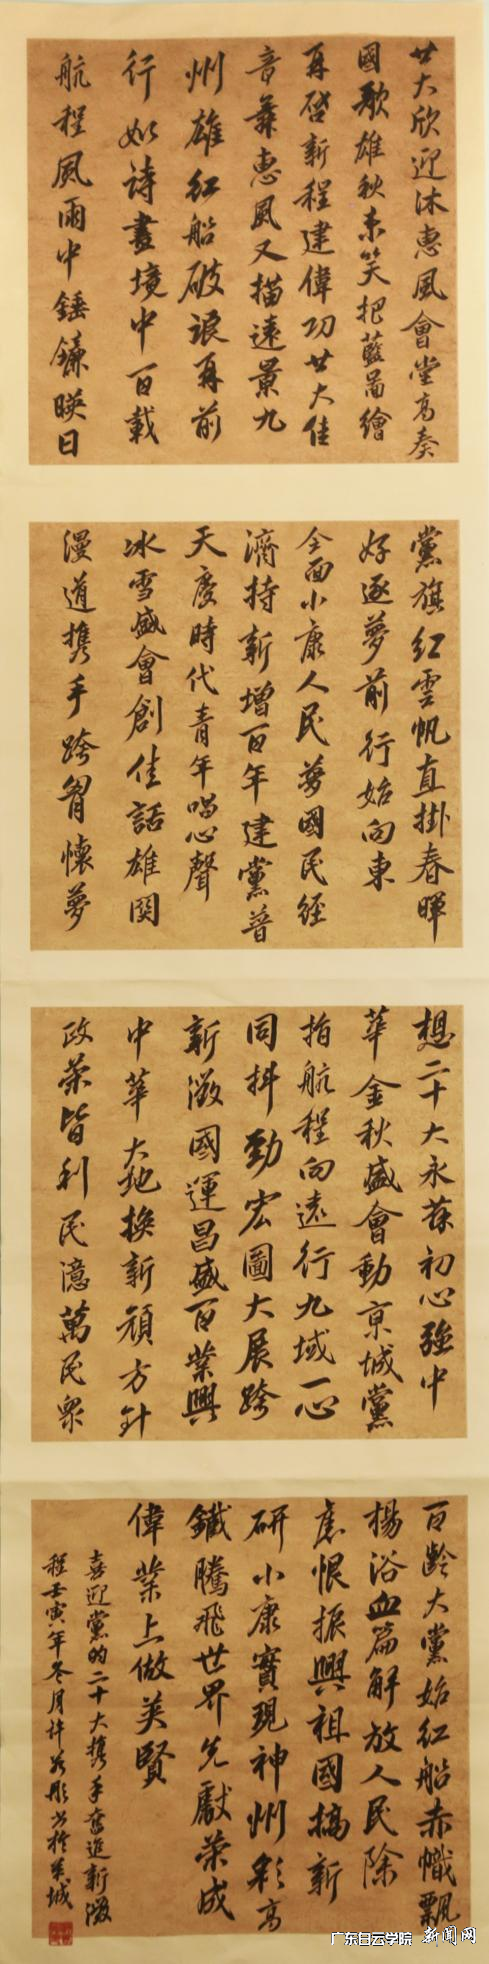 廿大欣迎沐惠風會堂高奏
國歌雄秋末笑把藍圖繪
再啓新程建偉功廿大佳
音彝惠風又描遠景九
州雄紅船破浪再前
行如詩畫境中百載
航程風雨中錘鐮暎日
黨旗紅雲帆直掛春暉
好逐夢前行始向東
全面小康人民夢國民經
濟持新增百年建黨普
天慶時代青年唱心聲
冰雪盛會創佳話雄関
漫道携手跨胷懷夢
想二十大永葆初心强中
華金秋盛會動京城黨
指航程向遠行九域一心
同抖勁宏圖大展跨
新激國運昌盛百業興
中華大地換新顔方針
政策皆利民億萬民衆
百齡大黨始紅船赤幟飄
揚浴血篇解放人民除
舊恨振興祖國搞新
研小康實現神州彩高
鐵騰飛世界先獻策成
偉業上做英賢
喜迎黨的二十大携手奮進新激
程壬寅年冬月許
廣東白云学院 新闻网